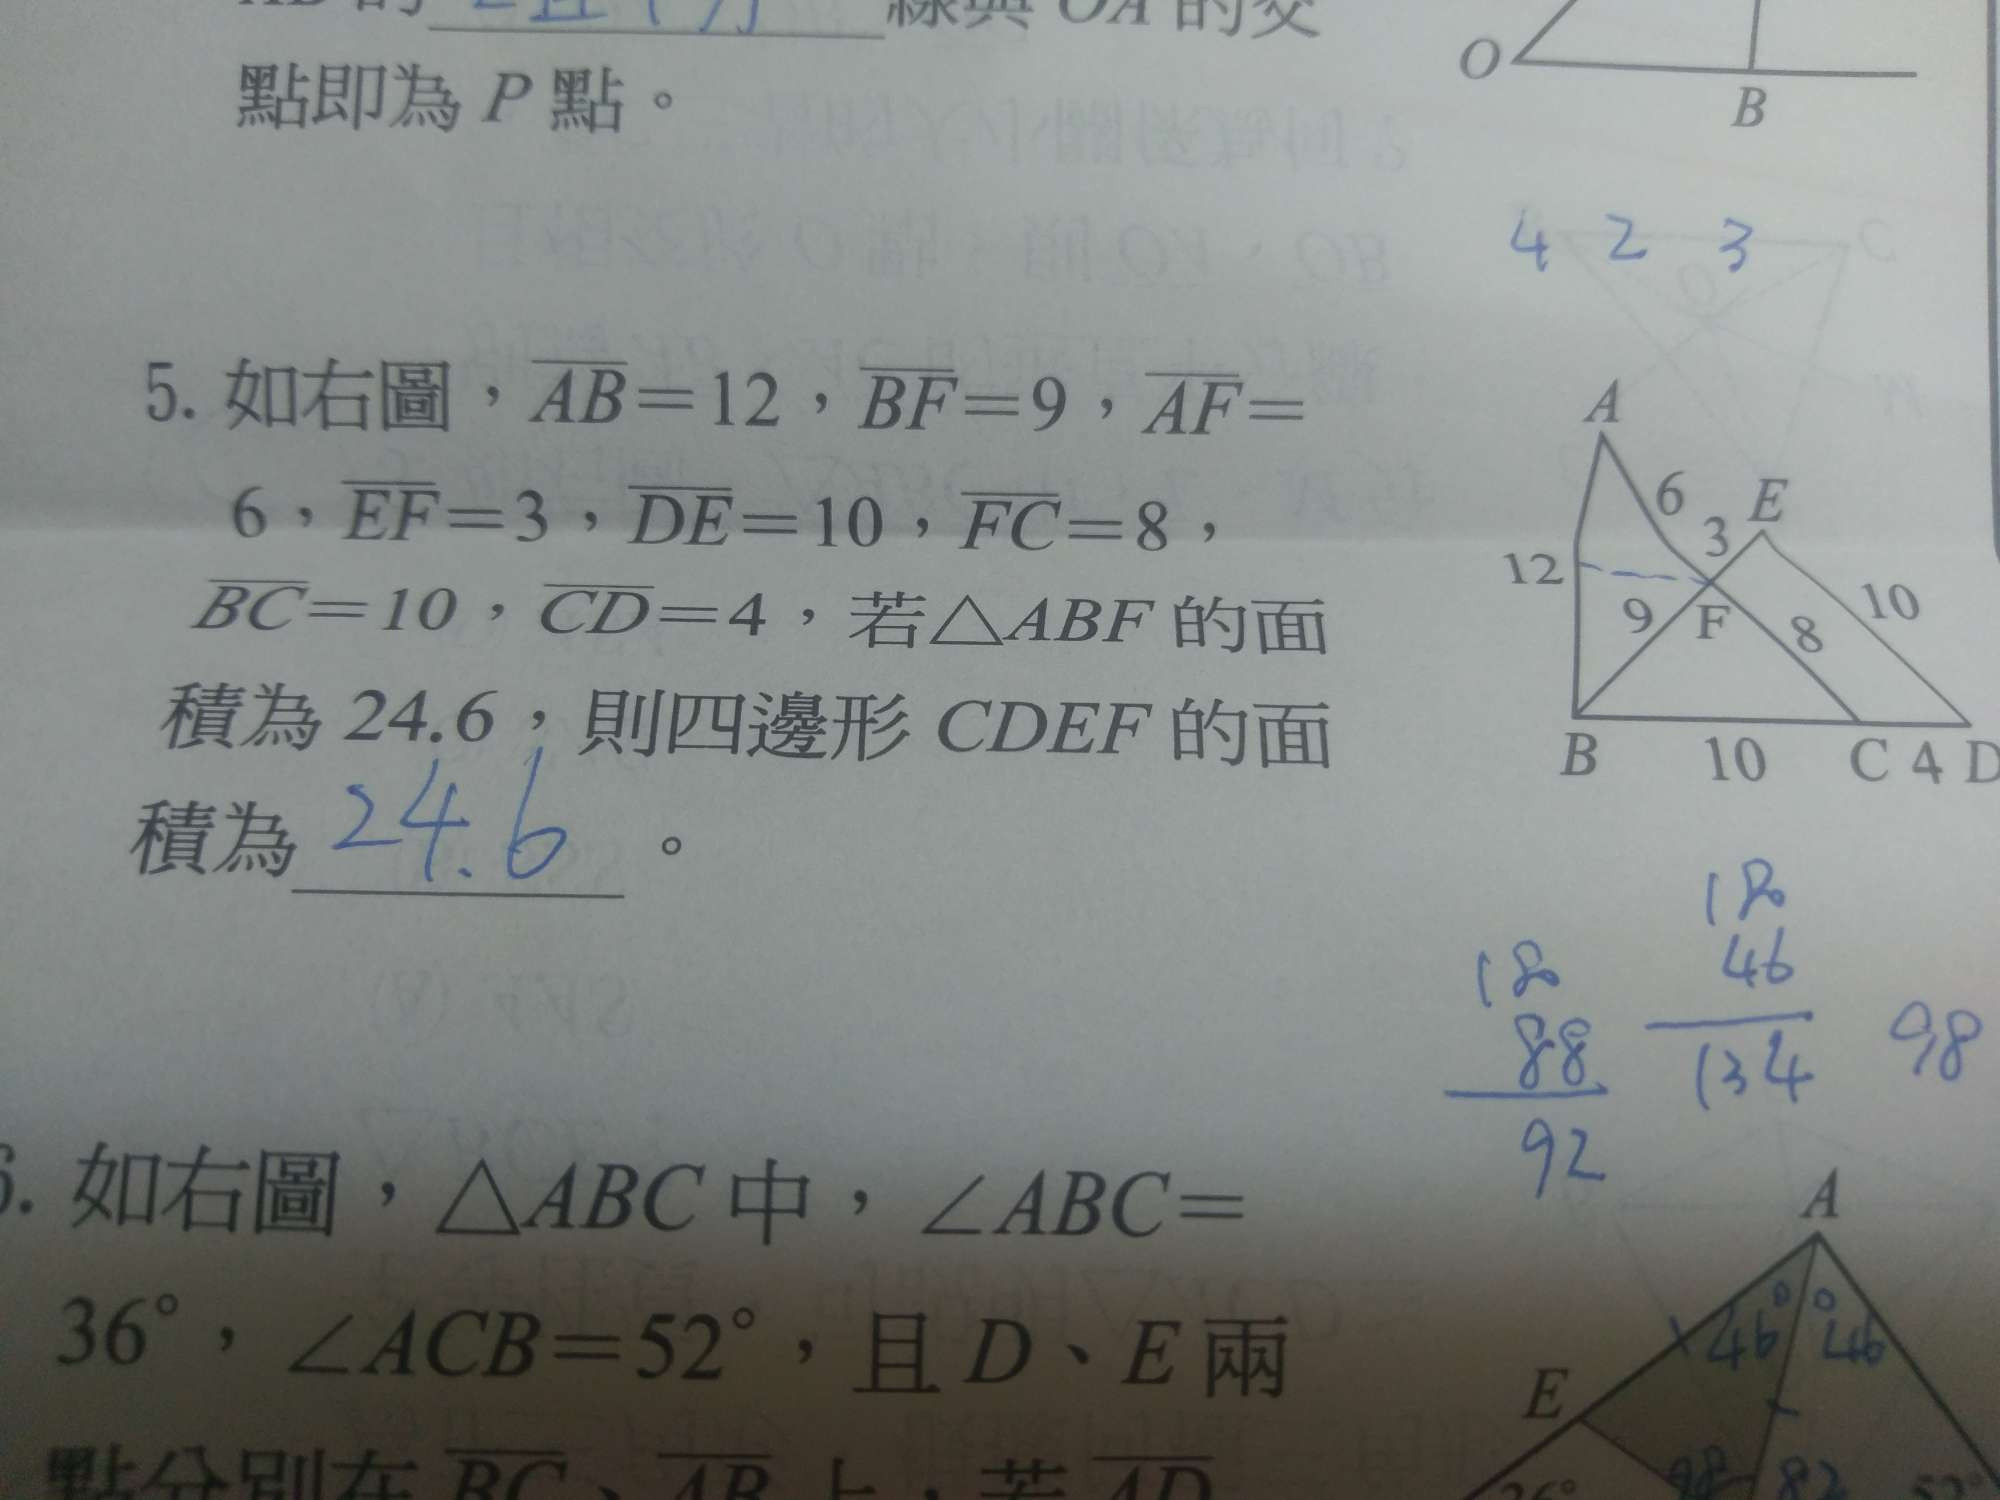 的 線與 OA 的交
點即為 P 點。
O
B
4 2 3
5. 如右圖，AB=12，BF=9，AF=
6，EF=3，DE=10，FC=8，
BC=10，CD=4，若△ABF 的面
積為 24.6，則四邊形 CDEF 的面
積為 24.6 。
A
6
3
E
12
9
F
8
10
B
10
C
4
D
180
46
134
180
88
92
98
6. 如右圖，△ABC 中，∠ABC=
36°，∠ACB=52°，且 D、E 兩
點分別在 BC、AB 上，若 AD
A
46
46
E
98
82
36°
52°